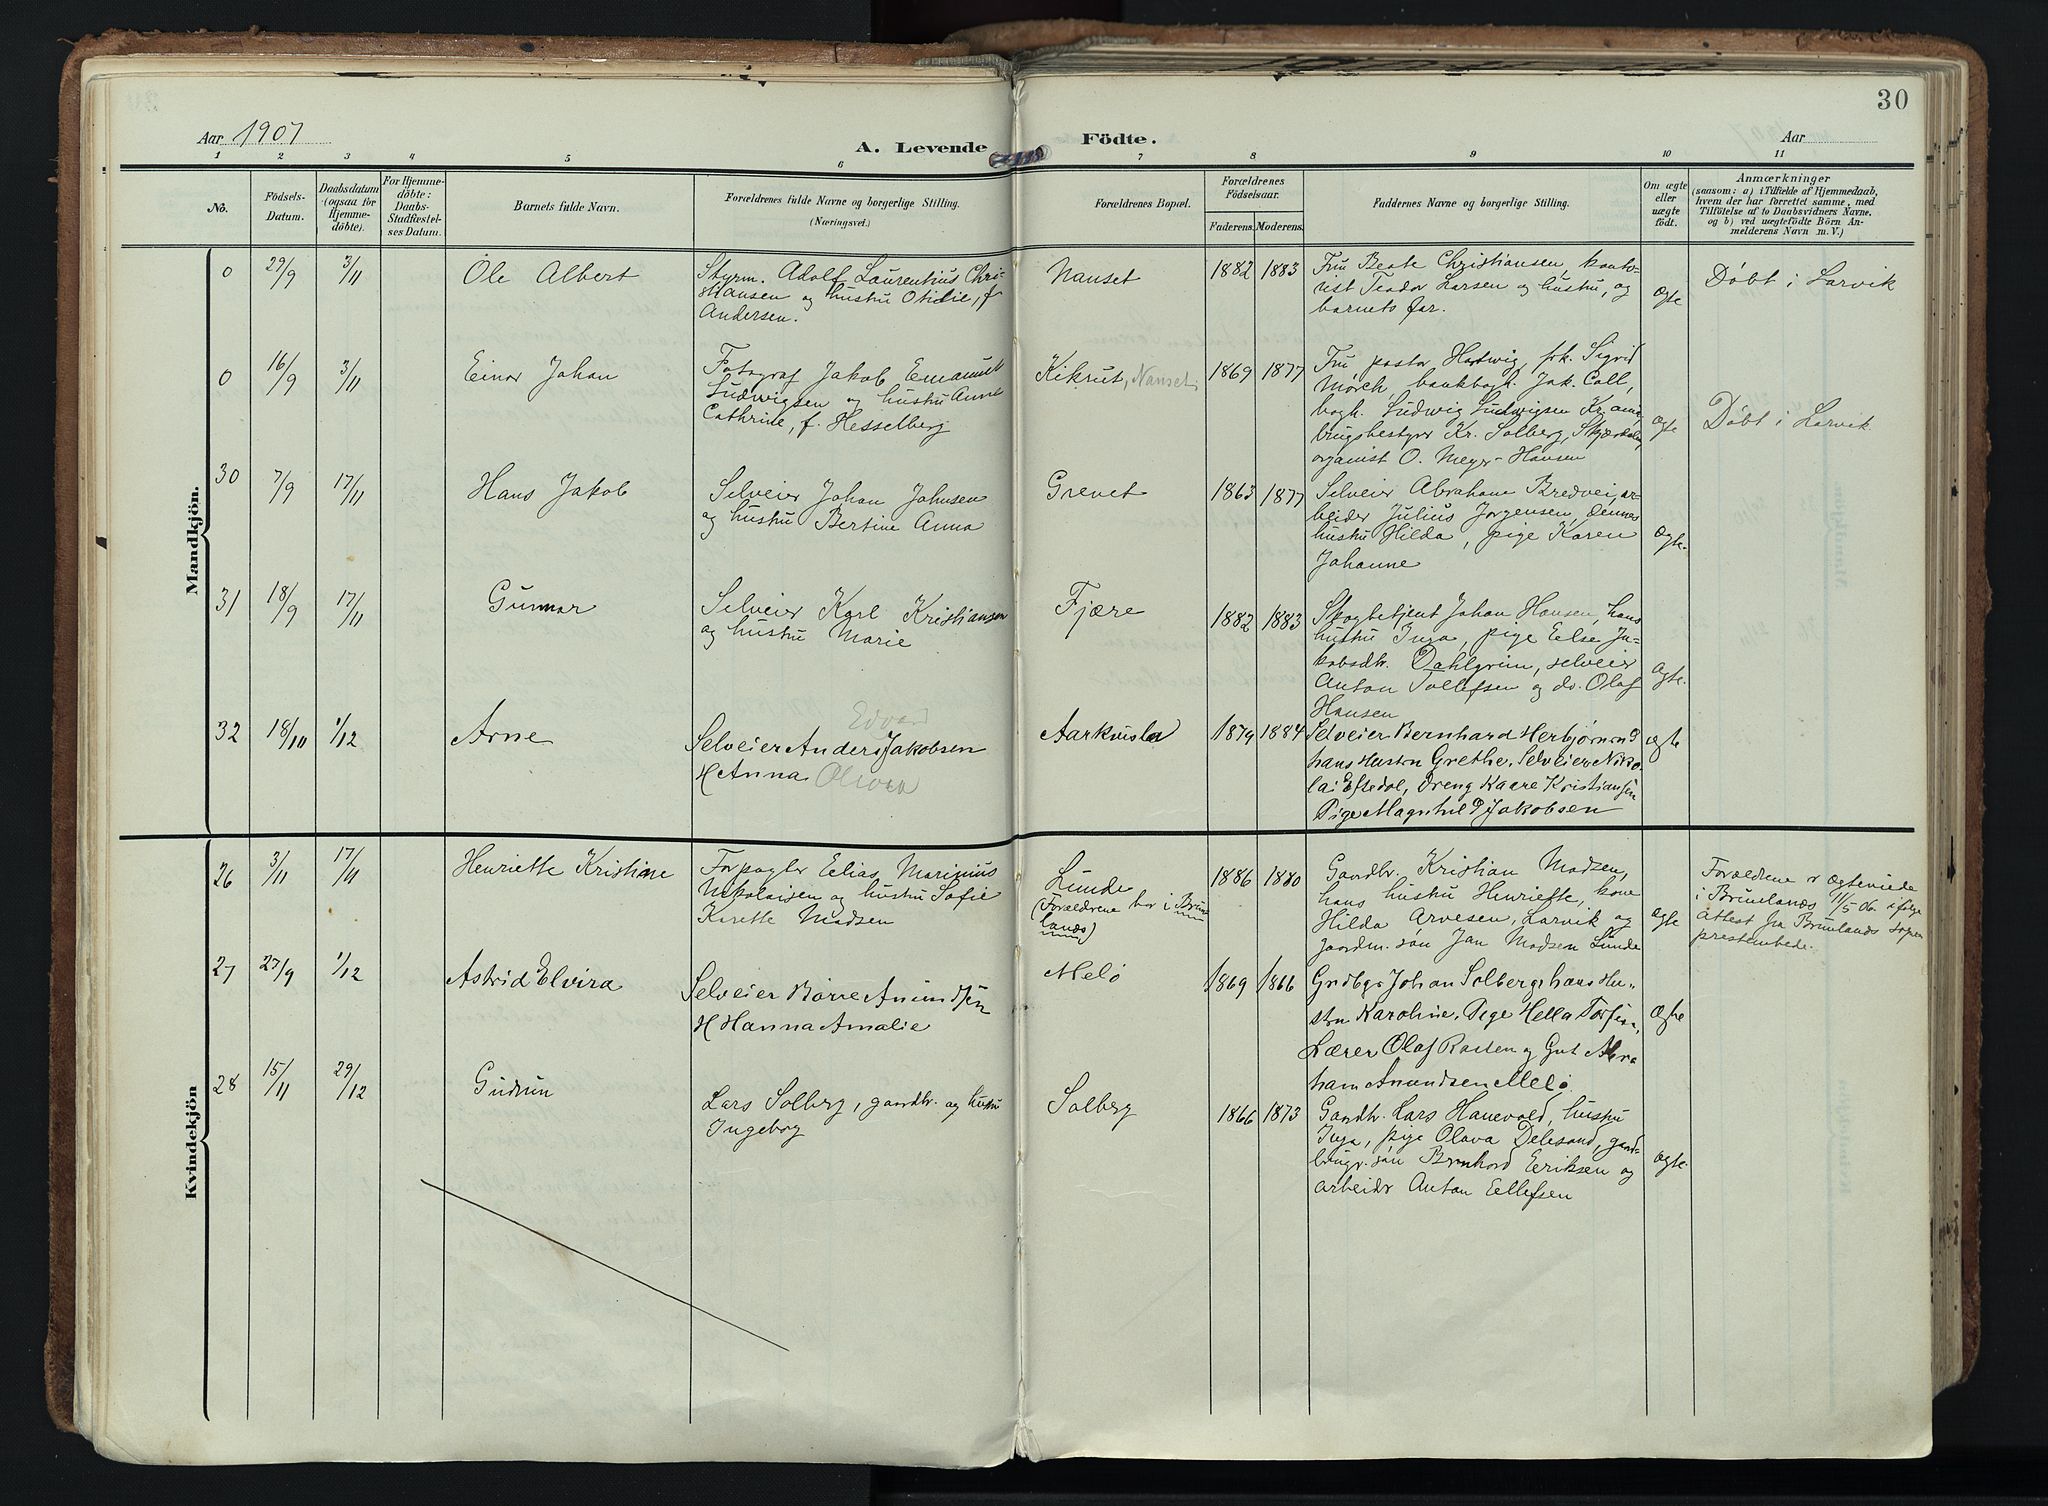 30
Aar 1907
A. Levende
Födte.
Aar
1 2 3 4 5 6 7 8 9 10 11
No.
Födsels-
Datum.
Daabsdatum
(ogsaa for
Hjemme-
döbte).
For Hjemme-
döbte:
Daabs-
Stadfæstel-
ses Datum.
Barnets fulde Navn.
Forældrenes fulde Navne og borgerlige Stilling.
(Næringsvei.)
Forældrenes Bopæl.
Forældrenes
Födselsaar.
Faderens. Moderens.
Faddernes Navne og borgerlige Stilling.
Om ægte
eller
uægte
födt.
Anmærkninger
(saasom: a) i Tilfælde af Hjemmedaab,
hvem der har forrettet samme, med
Tilföielse af to Daabsvidners Navne,
og b) ved uægtefödte Börn An-
melderens Navn m. V.)
Mandkjön.
0 29/9 3/11 Ole Albert
Styrm. Adolf Laurentius Chri-
stiansen og hustru Otidie, f.
Andersen.
Nanset 1882 1883
Fru Beate Christiansen, konto-
rist Teodor Larsen og hustru, og
barnets far.
ægte
Døbt i Larvik
0 16/9 3/11 Einar Johan
Fotograf Jakob Emanuel
Ludwigsen og hustru Anne
Cathrine, f. Hesselberg
Kikrut, Nanset. 1869 1877
Fru pastor Hartwig, frk. Sigrid
Mørch bankbogh. Jak. Coll,
bogh. Ludwig Ludwigsen Kr.ania,
brugsbestyrer Kr. Solberg, Skjærdalen,
organist O. Meyer-Hansen
ægte
Døbt i Larvik
30 7/9 17/11 Hans Jakob
Selveier Johan Johnsen
og hustru Bertine Anna
Grevet 1863 1877
Selveier Abraham Bredvei, ar-
beider Julius Jørgensen, dennes
hustru Hilda, pige Karen
Johanne
ægte.
31 18/9 17/11 Gunnar
Selveier Karl Kristiansen
og hustru Marie
Fjære 1882 1883
Skogbetjent Johan Hansen, hans
hustru Inga, pige Else Ja-
kobsdtr. Dahlgrim, selveier
Anton Tollefsen og do. Olaf
Hansen
ægte.
32 18/10 1/12 Arne
Edvard
Selveier Anders Jakobsen
H Anna Olivia
Aarkvisla 1879 1884
Selveier Bernhard Herbjørnrød
hans Hustru Grethe, Selveier Niko-
lai Eftedal, Dreng Kaare Kristiansen
Pige Magnhild Jakobsen
ægte
Kvindekjön
26 3/11 17/11 Henriette Kristiane
Forpagter Elias Marinius
Nikolaisen og hustru Sofie
Karette Madsen
Lunde
(Forældrene bor i Brun-
lanæs)
1886 1880
Gaardbr. Kristian Madsen,
hans hustru Henriette, kone
Hilda Arvesen, Larvik og
gaardm. søn Jan Madsen Lunde
ægte
Forældrene er ægteviede
i Brunlanæs 11/5 06. ifølge
attest fra Brunlanæs sogne-
presteembede.
27 27/9 1/12 Astrid Elvira
Selveier Børre Amundsen
H Hanna Amalie
Melø 1869 1866
Grdbgr Johan Solberg, hans Hu-
stru Karoline, Pige Hella
Lærer Olaf Rasten og Gut Abra
ham Amundsen Melø.
ægte
28 15/11 29/12 Gudrun
Lars Solberg, gaardbr. og hustru
Ingeborg
Solberg 1866 1873
Gaardbr. Lars Hanevold, hustru
Inga, pige Olava Delesand, gaard-
brugr. søn Bernhard Eriksen og
arbeider Anton Ellefsen
ægte.